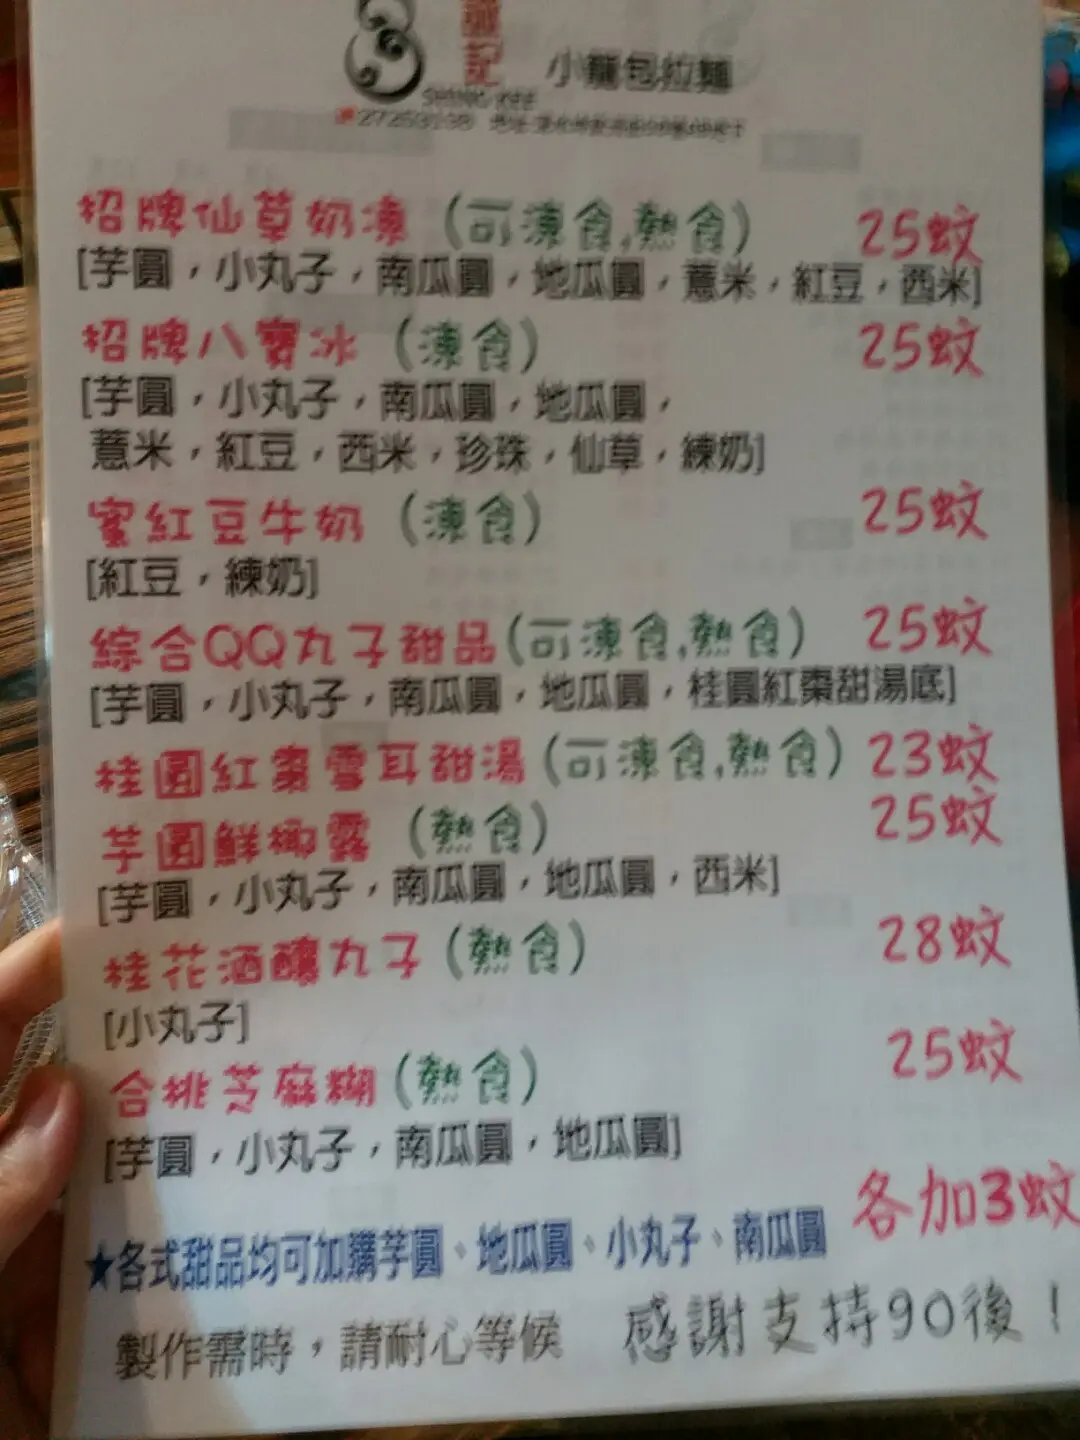 記
小籠包拉麵
招牌仙草奶凍 (可凍食,熱食) 25蚊
[芋圓，小丸子，南瓜圓，地瓜圓，薏米，紅豆，西米]
招牌八寶冰 (凍食) 25蚊
[芋圓，小丸子，南瓜圓，地瓜圓，
薏米，紅豆，西米，珍珠，仙草，練奶]
蜜紅豆牛奶 (凍食) 25蚊
[紅豆，練奶]
綜合QQ丸子甜品(可凍食,熱食) 25蚊
[芋圓，小丸子，南瓜圓，地瓜圓，桂圓紅棗甜湯底]
桂圓紅棗雪耳甜湯(可凍食,熱食) 23蚊
芋圓鮮椰露 (熱食) 25蚊
[芋圓，小丸子，南瓜圓，地瓜圓，西米]
桂花酒釀丸子 (熱食) 28蚊
[小丸子]
合桃芝麻糊 (熱食) 25蚊
[芋圓，小丸子，南瓜圓，地瓜圓]
各加3蚊
★各式甜品均可加購芋圓、地瓜圓、小丸子、南瓜圓
製作需時，請耐心等候 感謝支持90後！